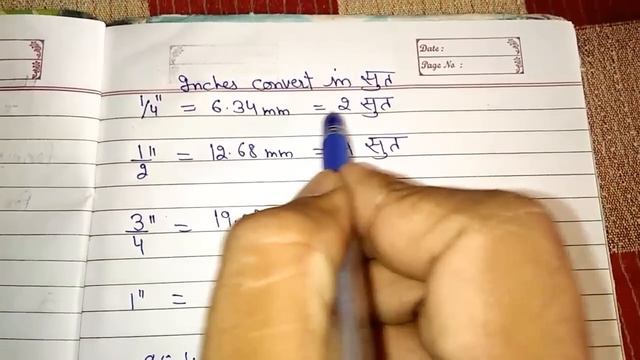 Date :
Page No :
Inches convert in सुत
1/4" = 6.34 mm = 2 सुत
1"/2 = 12.68 mm = सुत
3"/4 = 19.
1" =